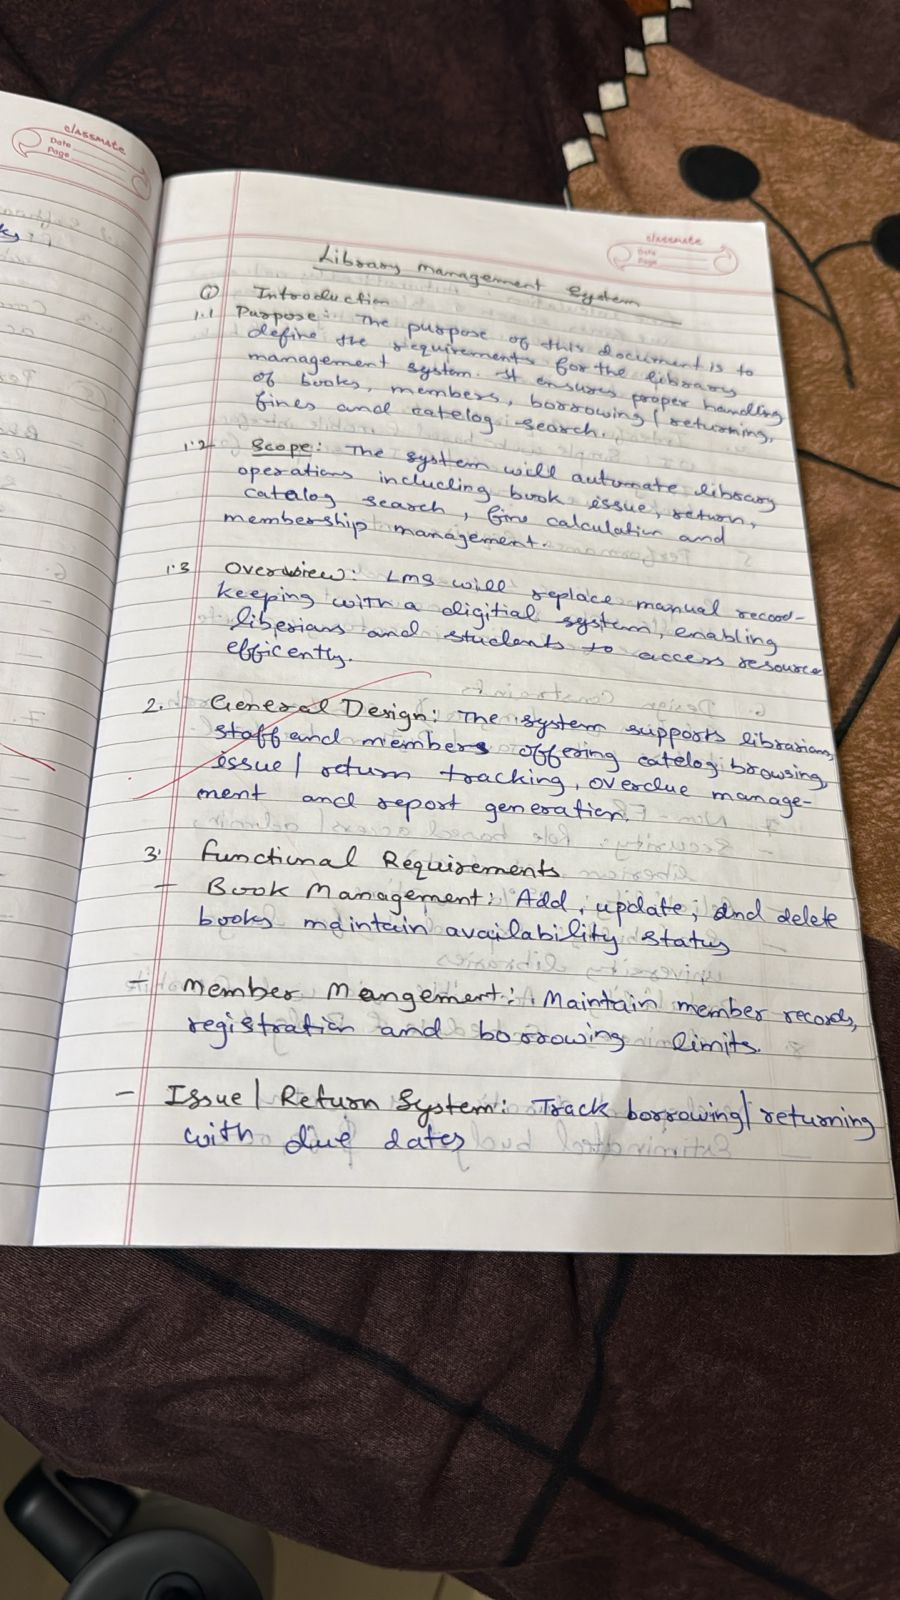 classmate
Date
Page
classmate
Date
Page
Library Management System
① Introduction
1.1 Purpose: The purpose of this document is to
define the requirements for the library
management system. It ensures proper handling
of books, members, borrowing / returning,
fines and catelog search.
1.2 Scope: The system will automate library
operations including book issue, return,
catalog search, fine calculation and
membership management.
1.3 Overview: LMS will replace manual record-
keeping with a digitial system, enabling
liberians and students to access resource
efficently.
2. General Design: The system supports librarians,
staff and members offering catelog browsing,
issue / return tracking, overdue manage-
ment and report generation.
3. Functional Requirements
- Book Management: Add, update, and delete
books maintain availability status
- Member Mengement: Maintain member records,
registration and borrowing limits.
- Issue / Return System: Track borrowing / returning
with due dates